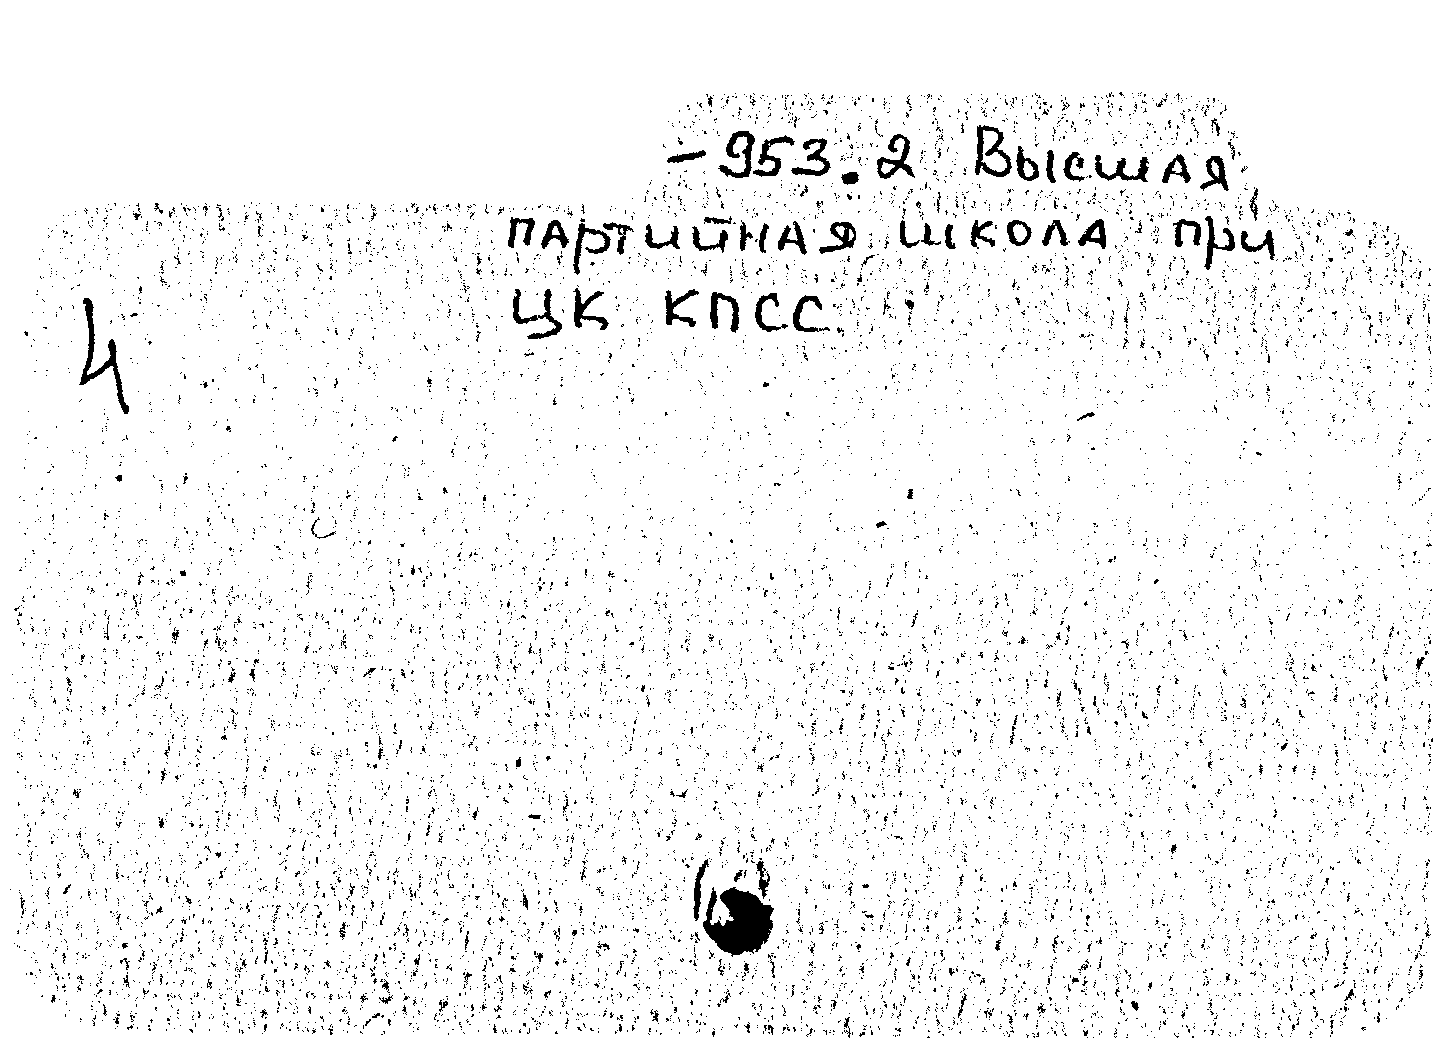 -953.2 Высшая
партийная школа при
ЦК КПСС